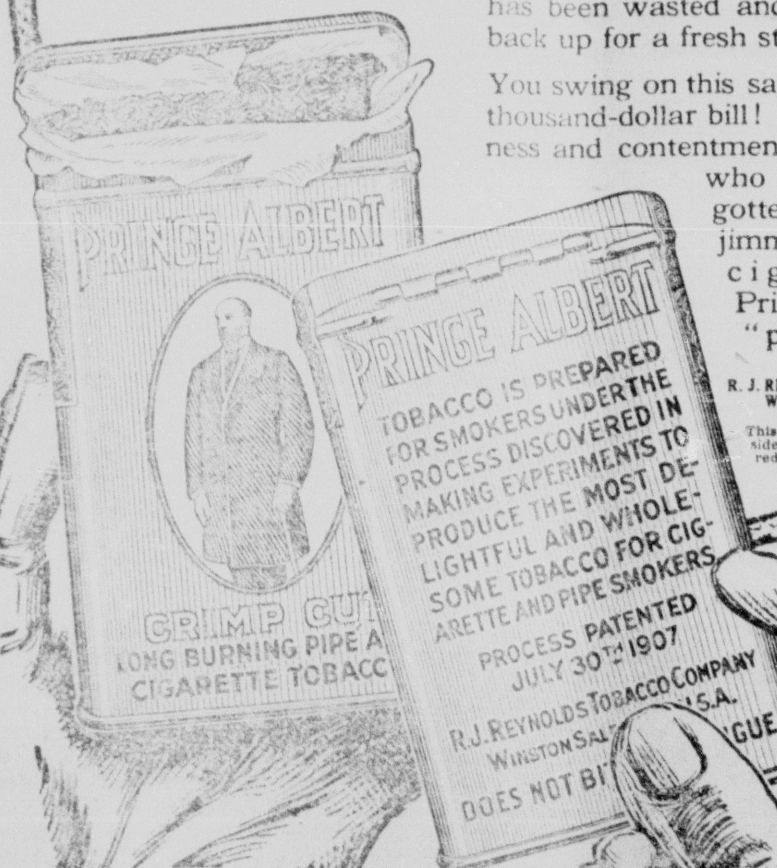 has been wasted and
back up for a fresh st
You swing on this sa
thousand-dollar bill!
ness and contentmen
who
gotte
jimm
cig
Pri
"p
R. J. R
W
This
side
red
PRINCE ALBERT
CRIMP CUT
LONG BURNING PIPE A
CIGARETTE TOBACC
PRINCE ALBERT
TOBACCO IS PREPARED
FOR SMOKERS UNDER THE
PROCESS DISCOVERED IN
MAKING EXPERIMENTS TO
PRODUCE THE MOST DE-
LIGHTFUL AND WHOLE-
SOME TOBACCO FOR CIG-
ARETTE AND PIPE SMOKERS.
PROCESS PATENTED
JULY 30TH 1907
R.J. REYNOLDS TOBACCO COMPANY
WINSTON SAL U.S.A.
DOES NOT BI NGUE